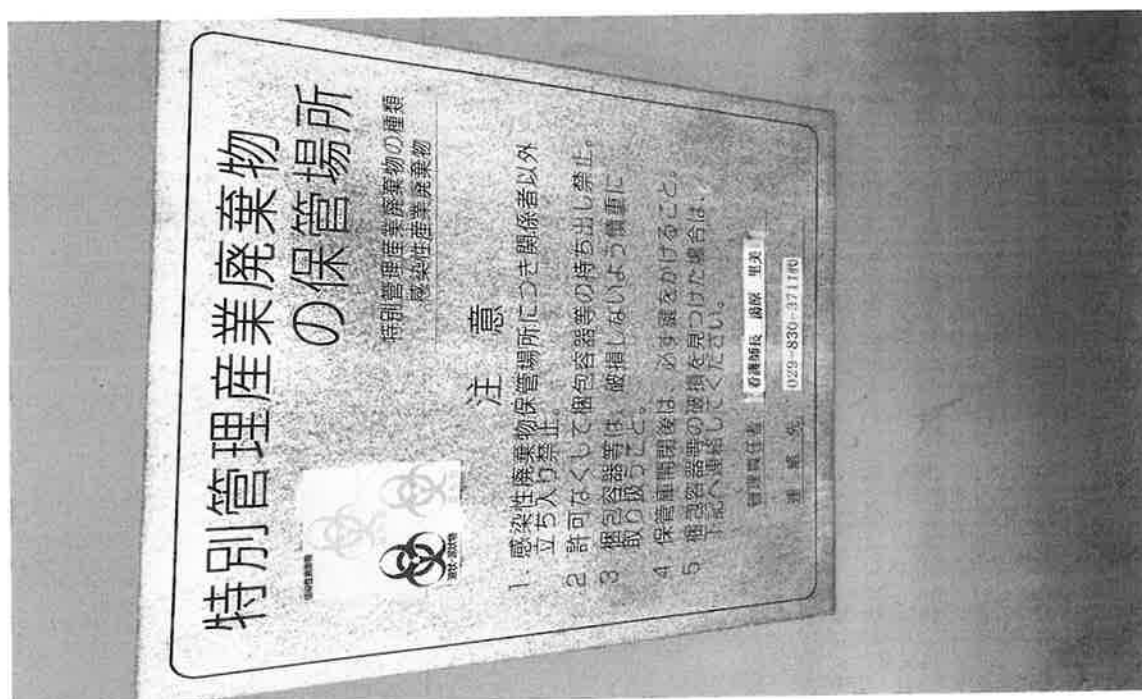 特別管理産業廃棄物
の保管場所
特別管理産業廃棄物の種類
感染性産業廃棄物
感染性廃棄物
液状・泥状物
注意
1. 感染性廃棄物保管場所につき関係者以外
立ち入り禁止。
2 許可なくして梱包容器等の持ち出し禁止。
3 梱包容器等は、破損しないよう慎重に
取り扱うこと。
4 保管庫開閉後は、必ず鍵をかけること。
5 梱包容器等の破損を見つけた場合は、
下記へ連絡してください。
管理責任者 看護師長 湯原 里美
連絡先 029-830-3711㈹